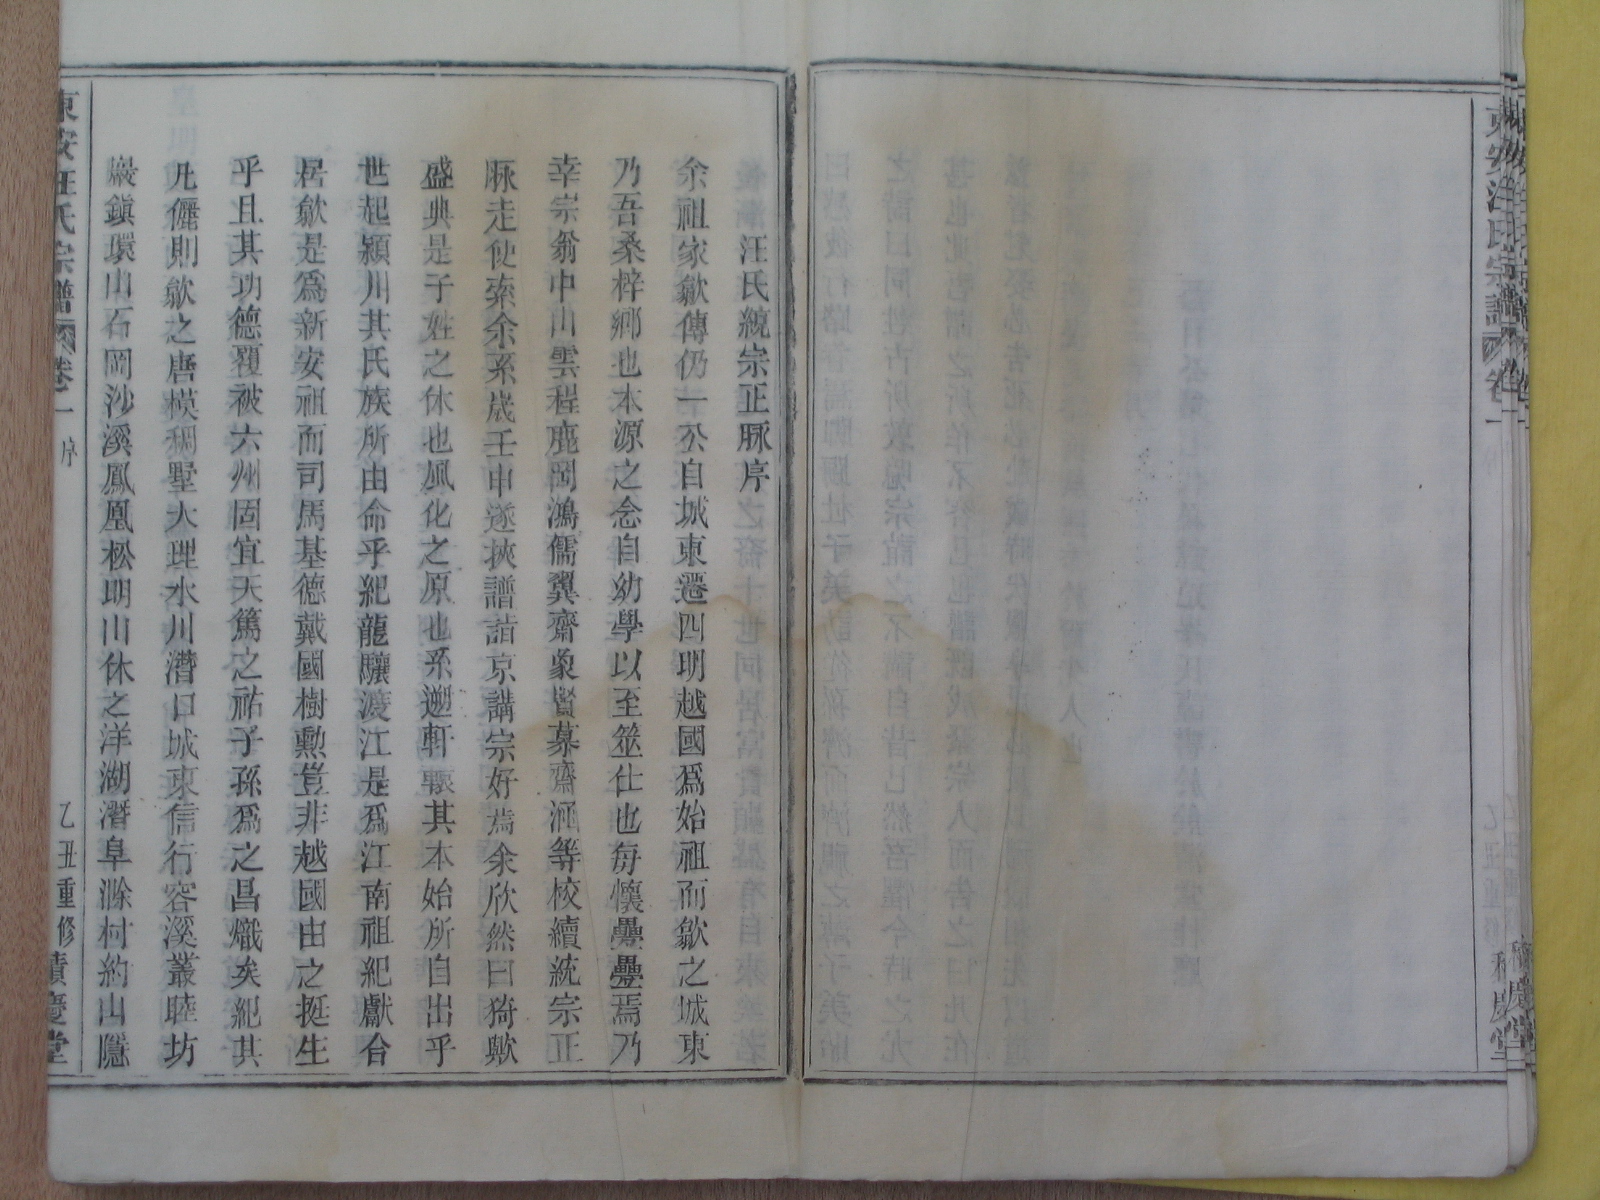 東安汪氏宗譜
卷一
積慶堂
汪氏統宗正脉序
余祖家歙傳仍一公自城東遷四明越國爲始祖而歙之城東
乃吾桑梓鄉也本源之念自幼學以至筮仕也每懷亹亹焉乃
幸宗翁中山雲程鹿岡鴻儒翼齋象賢慕齋涵等校續統宗正
脉走使索余系歲壬申遂挾譜詣京講宗好焉余欣然曰猗歟
盛典是子姓之休也風化之原也系遡軒轅其本始所自出乎
世起潁川其氏族所由命乎紀龍驤渡江是爲江南祖紀獻合
居歙是爲新安祖而司馬基德戴國樹勲豈非越國由之挺生
乎且其功德覆被六州固宜天篤之祐子孫爲之昌熾矣紀其
尤儷則歙之唐模稠墅大理水川潛口城東信行容溪叢睦坊
巖鎮環山石岡沙溪鳳凰松明山休之洋湖潛阜滁村約山隱
東安汪氏宗譜
卷一
序
乙丑重修
積慶堂